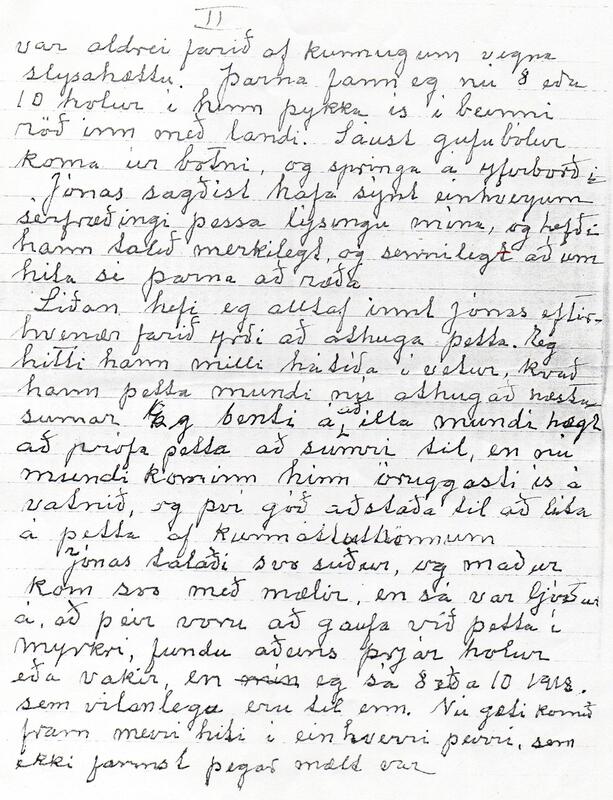 II
var aldrei farið af kunnugum vegna
slysahættu. Þarna fann eg nu 8 eða
10 holur i hinn þykka is i beinni
röð inn með landi. Sáust gufubolur
koma úr botni, og springa á yforborði
Jónas sagðist hafa sýnt einhverjum
sérfræðingi þessa lýsingu mína, og hefði
hann talið merkilegt, og sennilegt að um
hita se þarna að ræða
Siðan hefi eg alltaf innt Jónas eftir
hvenær farið yrði að athuga þetta. Eg
hitti hann milli hátiða i vetur, kvað
hann þetta mundi nú athugað næsta
sumar Eg benti á, að illa mundi hægt
að prófa þetta að sumri til, en nú
mundi kominn hinn öruggasti is á
vatnið, og þvi góð aðstaða til að lita
á þetta af kunnáttumönnum
Jónas talaði svo suður, og maður
kom svo með mælir, en sá var ljóður
á, að þeir voru að gaufa við þetta i
myrkri, fundu aðuns þrjár holur
eða vakir, en eg sá 8 eða 10 1918.
sem vitanlega eru til enn. Nu gæti komið
fram meiri hiti i einhverri þeirri, sem
ekki fannst þegar mælt var